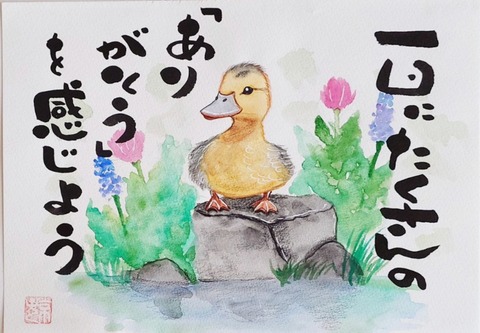 一日にたくさんの
「あり
がとう」
を感じよう